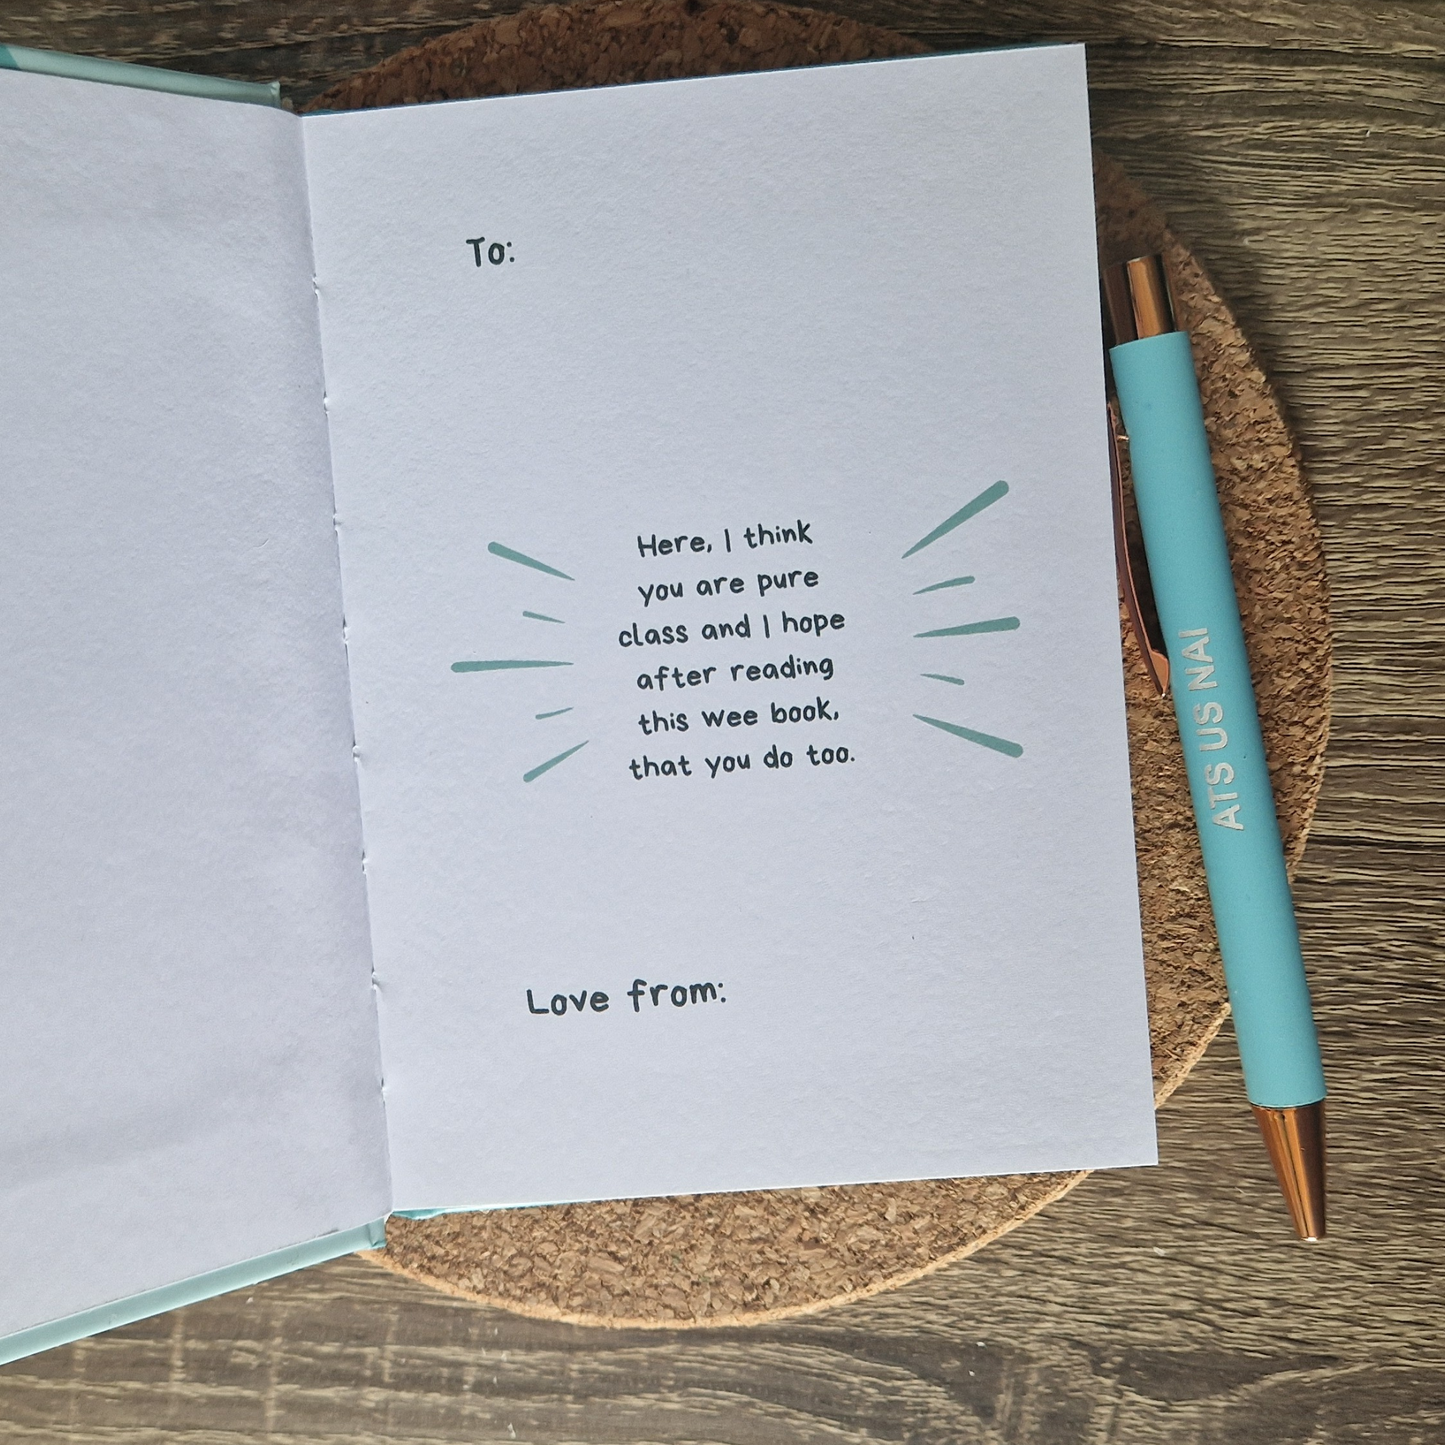 To:
Here, I think
you are pure
class and I hope
after reading
this wee book,
that you do too.
Love from:
ATS US NAI